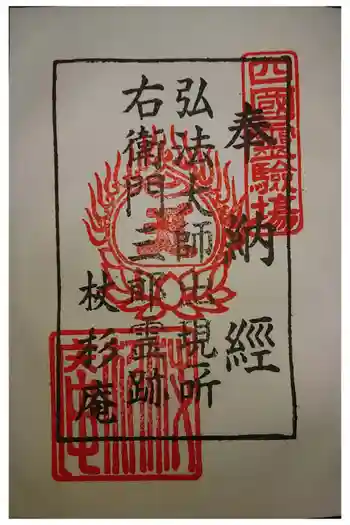 四國霊驗場
奉納經
弘法大師出現所
右衛門三郎霊跡
杖杉庵